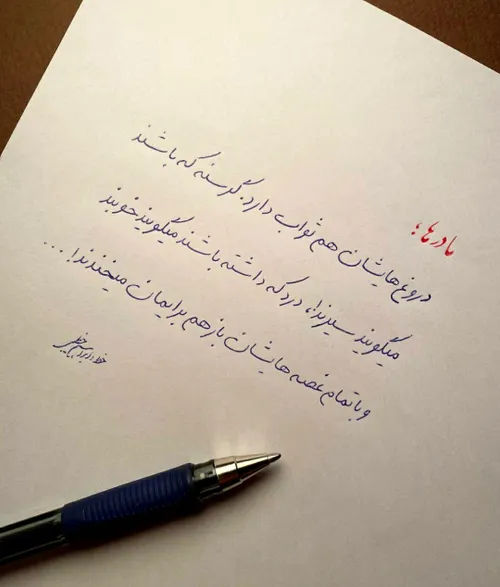 مادرها؛
دروغ‌هایشان هم ثواب دارد. گرسنه که باشند
میگویند سیرند!، درد که داشته باشند میگویند خوبند
و با تمام غصه هایشان باز هم برایمان میخندند! ...